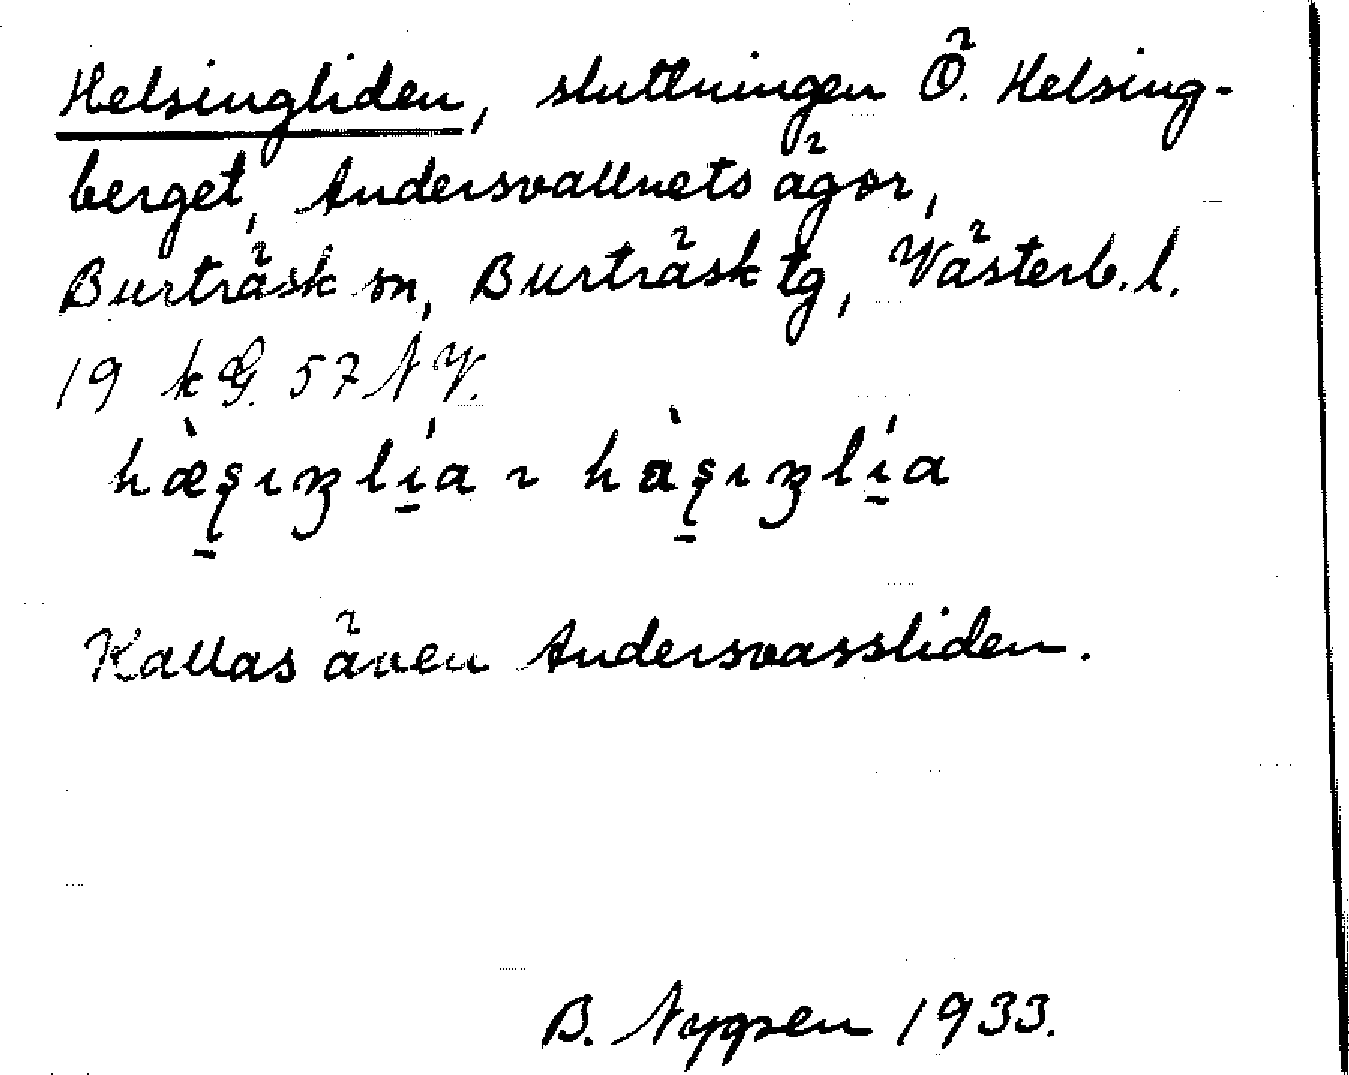 Helsingliden, sluttningen Ö. Helsing-
berget, Andersvattnets ägor,
Burträsk sn, Burträsk tg, Västerb. l.
19 k G. 57 N V.
Kallas även Andersvassliden.
B. 1933.